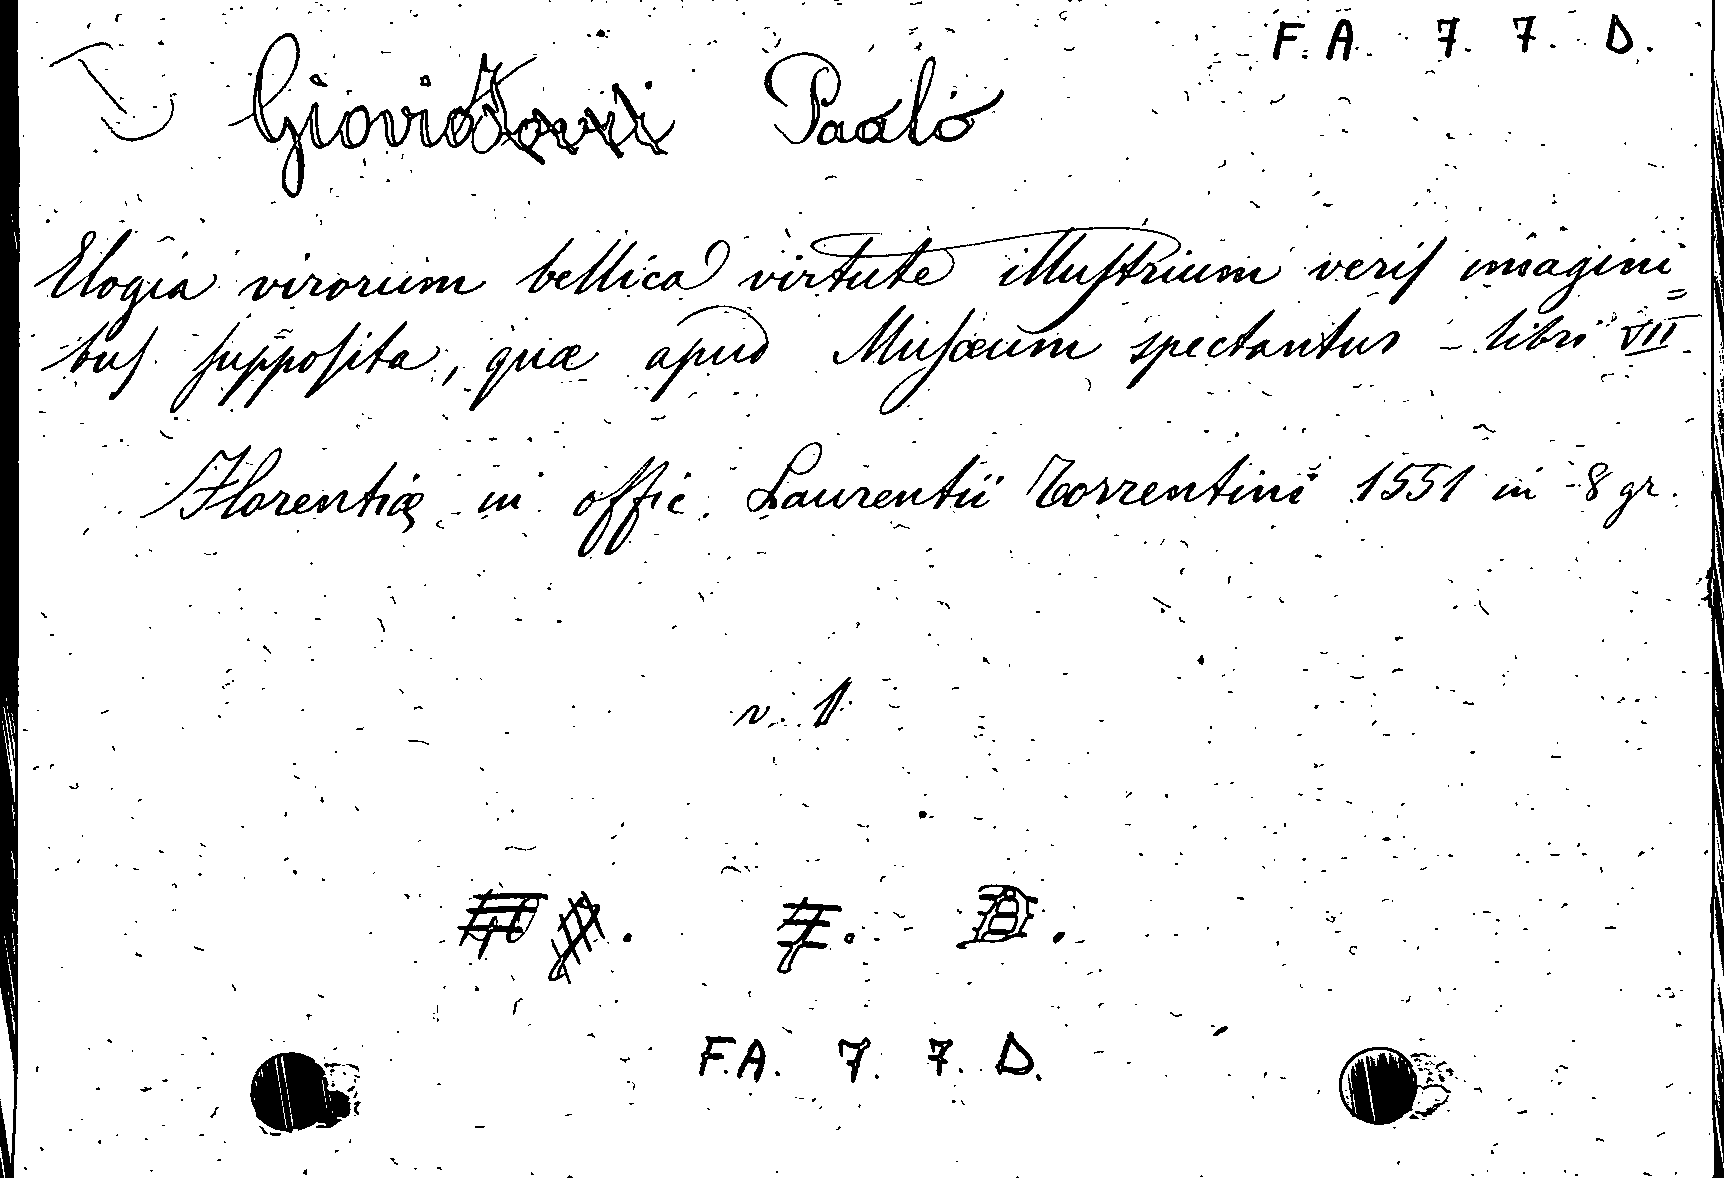 F. A. 7. 7. D.
Giovio Paolo
Elogia virorum bellica virtute illustrium veris imagini=
bus supposita, quæ apud Musæum spectantur - libri VII.
Florentiæ in offic. Laurentii Torrentini 1551 in -8 gr.
v. 1
F.A. 7. 7. D.